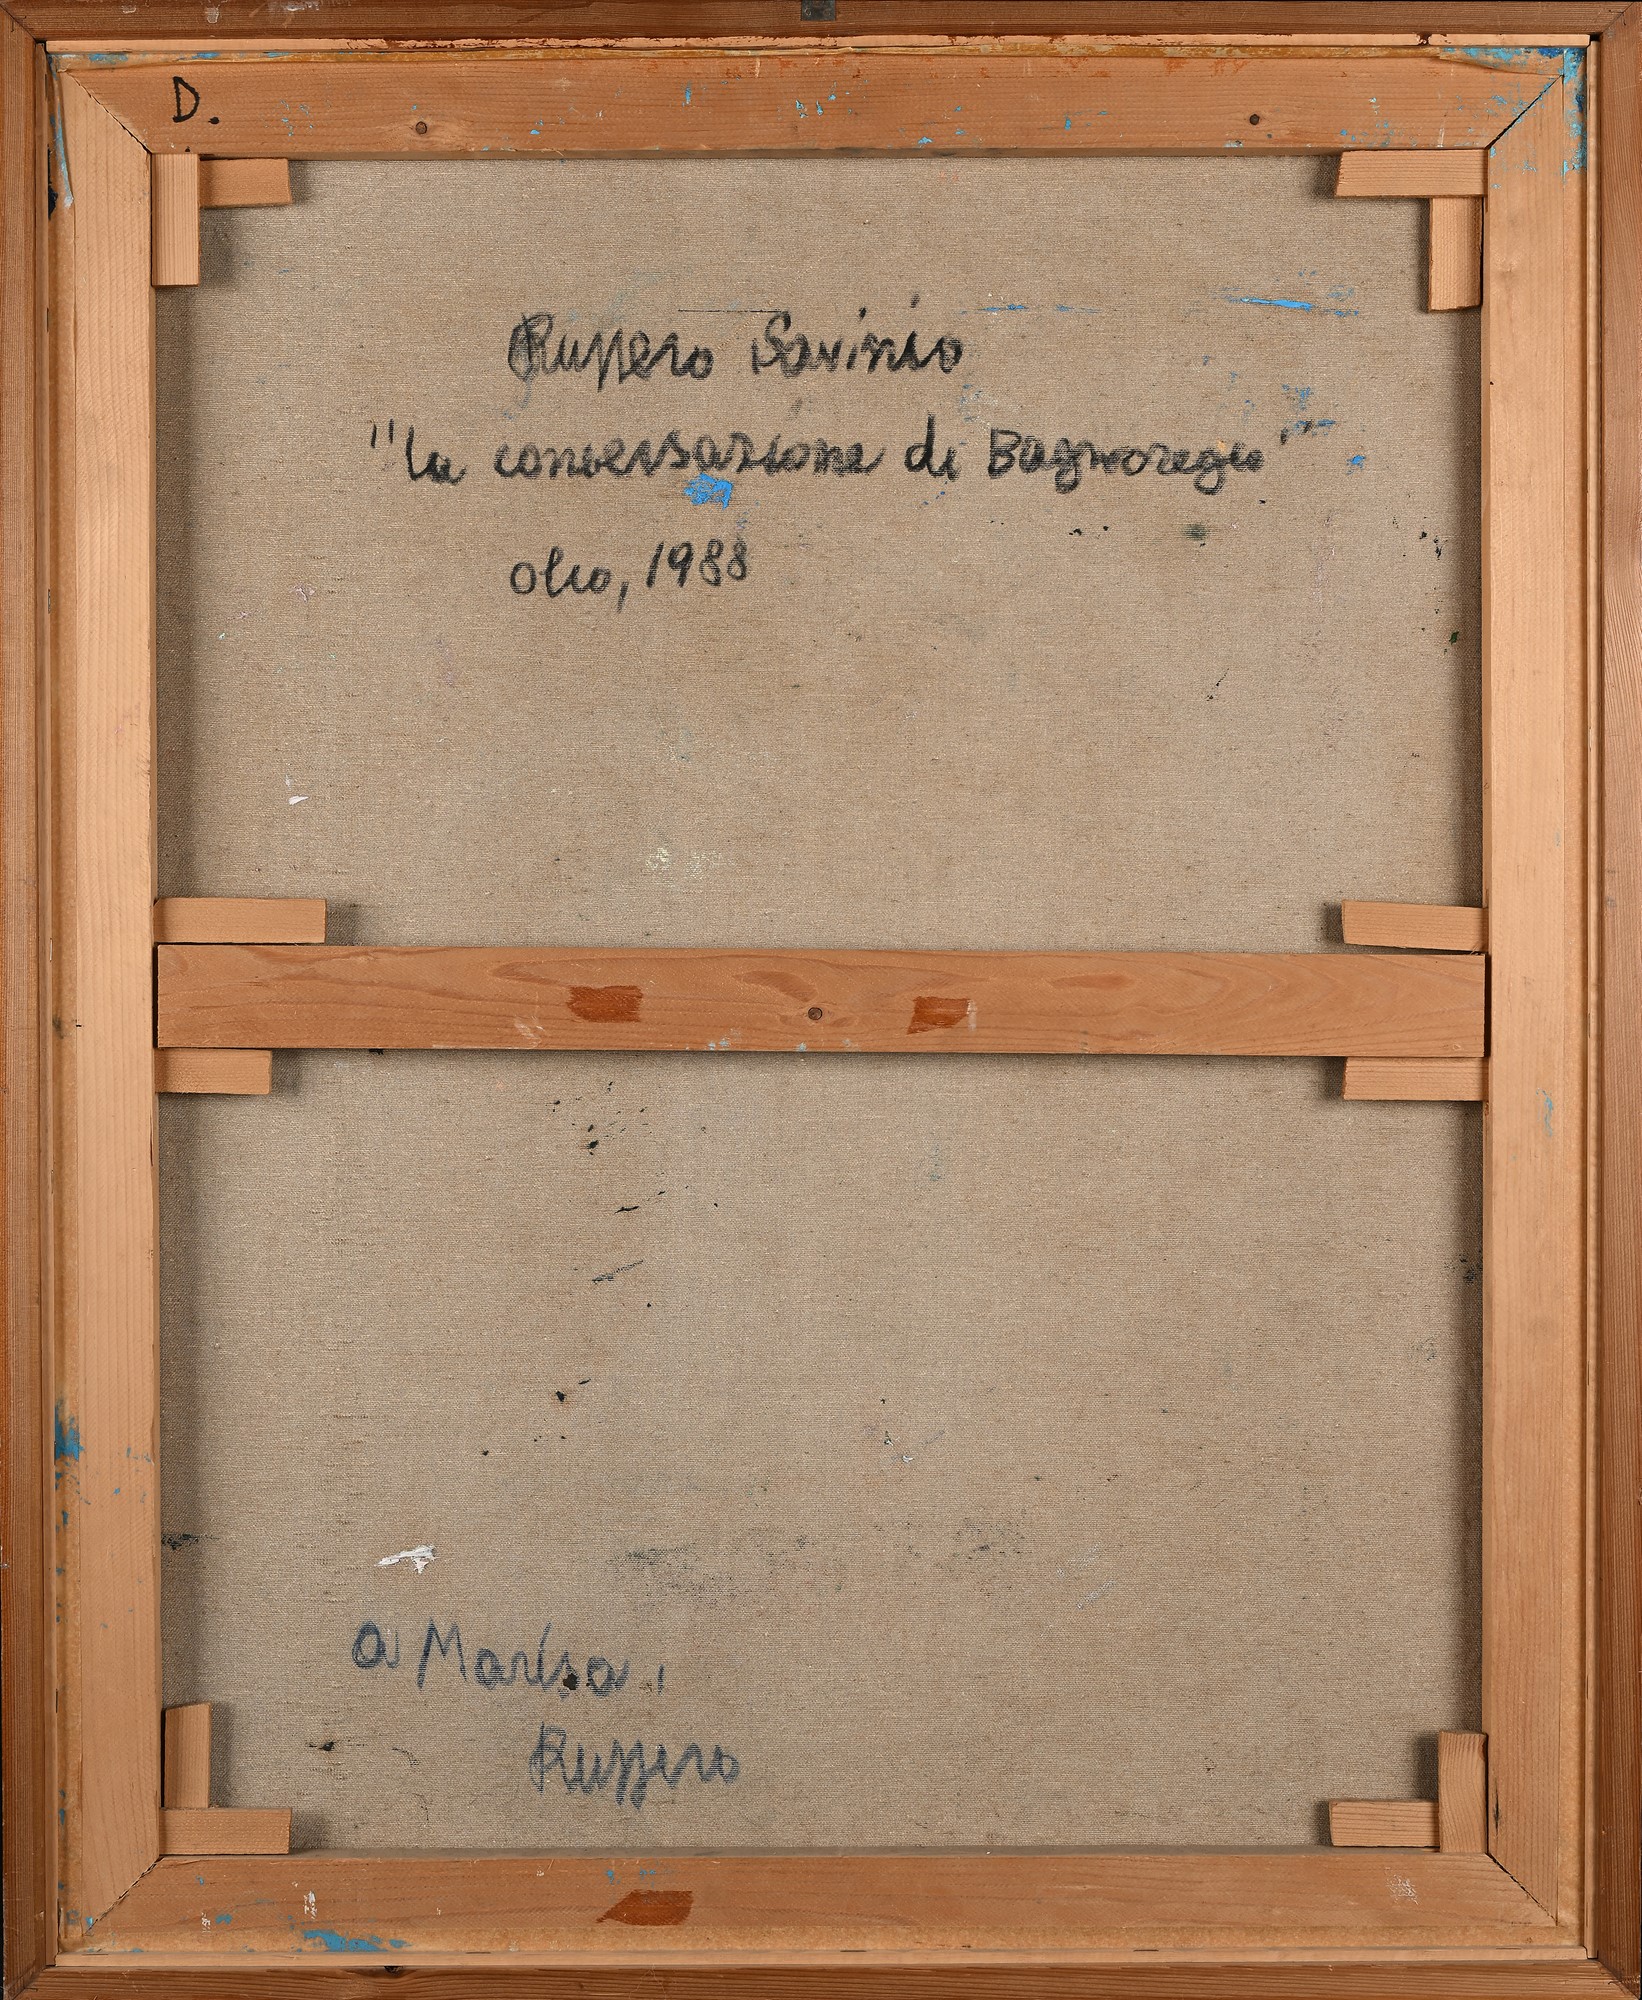 D.
Ruggero Savinio
"la conversazione di Bagnoregio"
olio, 1988
a Marisa,
Ruggero